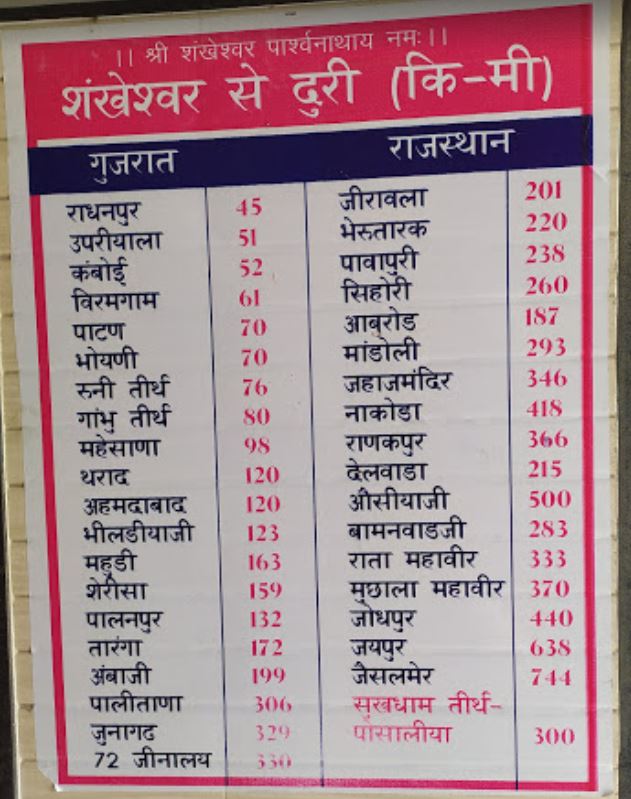 ।। श्री शंखेश्वर पार्श्वनाथाय नमः।।
शंखेश्वर से दुरी (कि-मी)
गुजरात
राधनपुर 45
उपरीयाला 51
कंबोई 52
विरमगाम 61
पाटण 70
भोयणी 70
रुनी तीर्थ 76
गांभु तीर्थ 80
महेसाणा 98
थराद 120
अहमदाबाद 120
भीलडीयाजी 123
महुडी 163
शेरीसा 159
पालनपुर 132
तारंगा 172
अंबाजी 199
पालीताणा 306
जुनागढ 329
72 जीनालय 330
राजस्थान
जीरावला 201
भेरुतारक 220
पावापुरी 238
सिहोरी 260
आबुरोड 187
मांडोली 293
जहाजमंदिर 346
नाकोडा 418
राणकपुर 366
देलवाडा 215
औसीयाजी 500
बामनवाडजी 283
राता महावीर 333
मुछाला महावीर 370
जोधपुर 440
जयपुर 638
जैसलमेर 744
सुखधाम तीर्थ-
पोसालीया 300